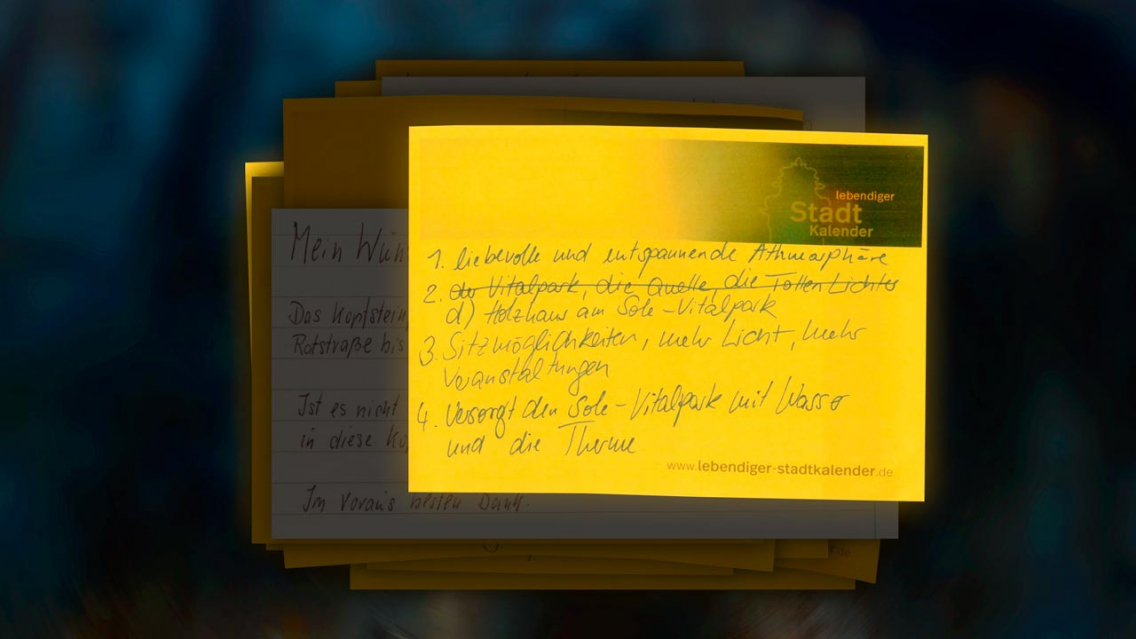 lebendiger
Stadt
Kalender
1. liebevolle und entspannende Athmosphäre
2. der Vitalpark, die Quelle, die Tollen Lichter
d) Holzhaus am Sole-Vitalpark
3. Sitzmöglichkeiten, mehr Licht, mehr
Veranstaltungen
4. Versorgt den Sole-Vitalpark mit Wasser
und die Therme
www.lebendiger-stadtkalender.de
Mein
Das
Rotstraße bis
Ist es nicht
in diese
Im Voraus besten Dank.